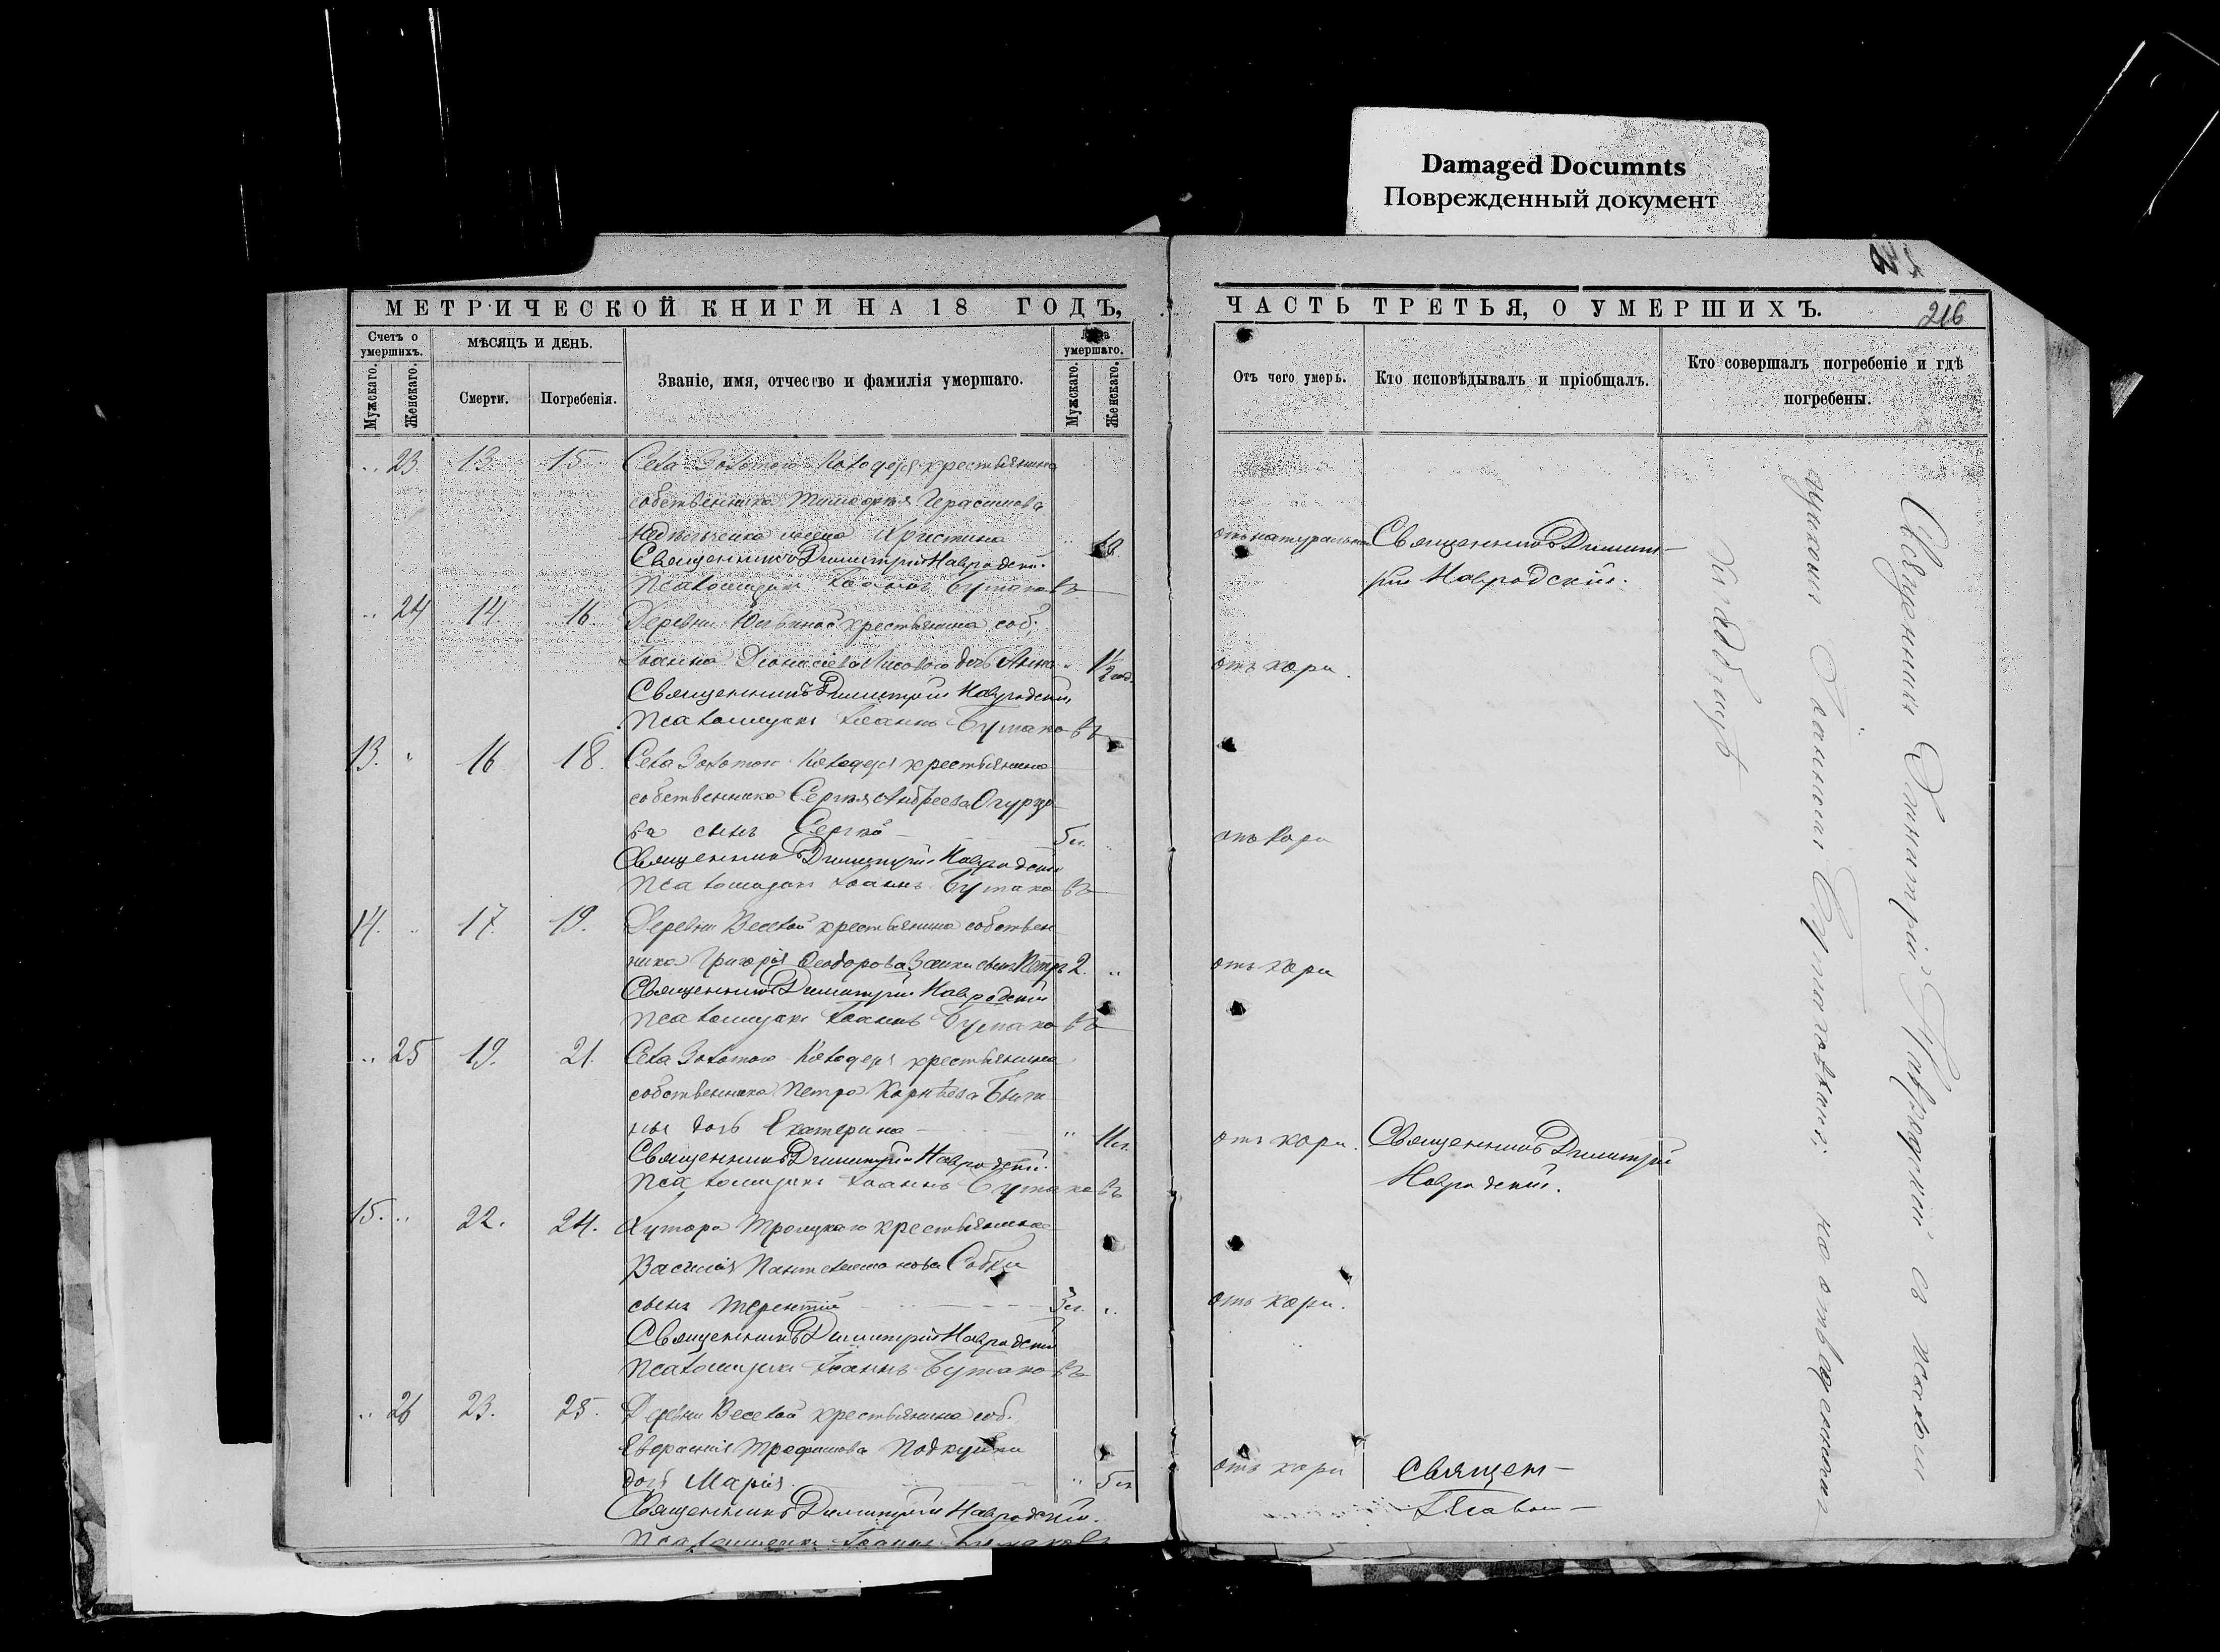 Damaged Documnts
Поврежденный документ
МЕТРИЧЕСКОЙ КНИГИ НА 18 ГОДЪ,
Счетъ о умершихъ.
Мужскаго.
Женскаго.
МѢСЯЦЪ И ДЕНЬ.
Смерти.
Погребенія.
Званіе, имя, отчество и фамилія умершаго.
умершаго.
Мужскаго.
Женскаго.
23 13 15 Села Золотого Колодезя крестьянина
собственника Тимофея Герасимова
жена Христина
Священникъ Димитрій Навродскій.
Псаломщикъ Іоаннъ Бутаковъ
24 14. 16. Деревни крестьянина соб.
Іоанна Діонисіева Лисового дочь Анна 1 1/2 год.
Священникъ Димитрій Навродскій,
Псаломщикъ Іоаннъ Бутаковъ
13. 16 18. Села Золотого Колодезя крестьянина
собственника Сергѣя Андреева Огурцо-
ва сынъ Сергій 5 л.
Священникъ Димитрій Навродскій
Псаломщикъ Іоаннъ Бутаковъ
14. 17. 19. Деревни Веселой крестьянина собствен-
ника Григорія Ѳеодорова Заики сынъ Петръ 2.
Священникъ Димитрій Навродскій
Псаломщикъ Іоаннъ Бутаковъ
25 19. 21. Села Золотого Колодезя крестьянина
собственника Петра Корнѣева
дочь Екатерина 11 л.
Священникъ Димитрій Навродскій.
Псаломщикъ Іоаннъ Бутаковъ
15. 22. 24. Хутора Троицкаго крестьянина
Василія Пантелеимонова
сынъ Терентій 3 л.
Священникъ Димитрій Навродскій
Псаломщикъ Іоаннъ Бутаковъ
26 23. 25. Деревни Веселой крестьянина соб.
Трофимова
дочь Марія 5 л.
Священникъ Димитрій Навродскій.
Псаломщикъ Іоаннъ Бутаковъ
ЧАСТЬ ТРЕТЬЯ, О УМЕРШИХЪ.
216
Отъ чего умеръ.
Кто исповѣдывалъ и пріобщалъ.
Кто совершалъ погребеніе и гдѣ
погребены.
Священникъ Димит-
рій Навродскій.
отъ кори.
отъ кори
отъ кори
отъ кори. Священникъ Димитрій
Навродскій.
отъ кори.
отъ кори Священ-
Псалом-
Священникъ Димитрій Навродскій съ псалом-
щикомъ Іоанномъ Бутаковымъ на отведенномъ
кладбищѣ